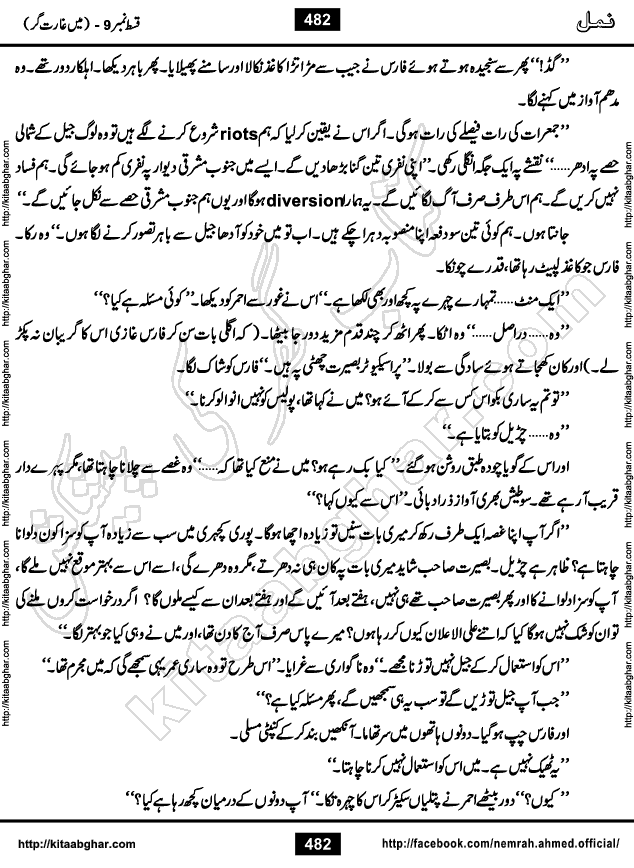 قسط نمبر 9 - (میں غارت گر)
482
نمل
’’گڈ!‘‘ پھر سے سنجیدہ ہوتے ہوئے فارس نے جیب سے مڑا تڑا کاغذ نکالا اور سامنے پھیلایا۔ پھر باہر دیکھا۔ اہلکار دور تھے۔ وہ
مدھم آواز میں کہنے لگا۔
’’جمعرات کی رات فیصلے کی رات ہوگی۔ اگر اس نے یقین کر لیا کہ ہم riots شروع کرنے لگے ہیں تو وہ لوگ جیل کے شمالی
حصے پہ ادھر......‘‘ نقشے پہ ایک جگہ انگلی رکھی۔ ’’اپنی نفری تین گنا بڑھا دیں گے۔ ایسے میں جنوب مشرقی دیوار پہ نفری کم ہو جائے گی۔ ہم فساد
نہیں کریں گے۔ ہم اس طرف صرف آگ لگائیں گے۔ یہ ہمارا diversion ہوگا اور یوں ہم جنوب مشرقی حصے سے نکل جائیں گے۔‘‘
جانتا ہوں۔ ہم کوئی تین سو دفعہ اپنا منصوبہ دہرا چکے ہیں۔ اب تو میں خود کو آدھا جیل سے باہر تصور کرنے لگا ہوں۔‘‘ وہ رکا۔
فارس جو کاغذ لپیٹ رہا تھا، قدرے چونکا۔
’’ایک منٹ...... تمہارے چہرے پہ کچھ اور بھی لکھا ہے۔‘‘ اس نے غور سے احمر کو دیکھا۔ ’’کوئی مسئلہ ہے کیا؟‘‘
’’وہ...... دراصل......‘‘ وہ اٹکا۔ پھر اٹھ کر چند قدم مزید دور جا بیٹھا۔ (کہ اگلی بات سن کر فارس غازی اس کا گریبان نہ پکڑ
لے۔) اور کان کھجاتے ہوئے سادگی سے بولا۔ ’’پراسیکیوٹر بصیرت چھٹی پہ ہیں۔‘‘ فارس کو شاک لگا۔
’’تو تم یہ ساری بکواس کس سے کر کے آئے ہو؟ میں نے کہا تھا، پولیس کو نہیں انوالو کرنا۔‘‘
’’وہ...... چڑیل کو بتایا ہے۔‘‘
اور اس کے گویا چودہ طبق روشن ہو گئے۔ ’’کیا بک رہے ہو؟ میں نے منع کیا تھا کہ......‘‘ وہ غصے سے چلانا چاہتا تھا، مگر پہرے دار
قریب آ رہے تھے۔ سو طیش بھری آواز ذرا دبائی۔ ’’اس سے کیوں کہا؟‘‘
’’اگر آپ اپنا غصہ ایک طرف رکھ کر میری بات سنیں تو زیادہ اچھا ہوگا۔ پوری کچہری میں سب سے زیادہ آپ کو سزا کون دلوانا
چاہتا ہے؟ ظاہر ہے چڑیل۔ بصیرت صاحب شاید میری بات پہ کان ہی نہ دھرتے، مگر وہ دھرے گی، اسے اس سے بہتر موقع نہیں ملے گا،
آپ کو سزا دلوانے کا اور پھر بصیرت صاحب تھے ہی نہیں، ہفتے بعد آئیں گے اور ہفتے بعد ان سے کیسے ملوں گا؟ اگر درخواست کروں ملنے کی
تو ان کو شک نہیں ہوگا کیا کہ اتنے علی الاعلان کیوں کر رہا ہوں؟ میرے پاس صرف آج کا دن تھا، اور میں نے وہی کیا جو بہتر لگا۔‘‘
’’اس کو استعمال کر کے جیل نہیں توڑنا مجھے۔‘‘ وہ ناگواری سے غرایا۔ ’’اس طرح تو وہ ساری عمر یہی سمجھے گی کہ میں مجرم تھا۔‘‘
’’جب آپ جیل توڑیں گے تو سب یہ ہی سمجھیں گے، پھر مسئلہ کیا ہے؟‘‘
اور فارس چپ ہو گیا۔ دونوں ہاتھوں میں سر تھاما۔ آنکھیں بند کر کے کنپٹی مسلی۔
’’یہ ٹھیک نہیں ہے۔ میں اس کو استعمال نہیں کرنا چاہتا۔‘‘
’’کیوں؟‘‘ دور بیٹھے احمر نے پتلیاں سکیڑ کر اس کا چہرہ تکا۔ ’’آپ دونوں کے درمیان کچھ رہا ہے کیا؟‘‘
http://kitaabghar.com
http://kitaabghar.com
http://kitaabghar.com
http://kitaabghar.com
http://kitaabghar.com
http://kitaabghar.com
http://kitaabghar.com
http://kitaabghar.com
http://kitaabghar.com
http://kitaabghar.com
http://kitaabghar.com
http://kitaabghar.com
کتاب گھر کی پیشکش
kitaabghar.com
http://kitaabghar.com
482
http://facebook.com/nemrah.ahmed.official/